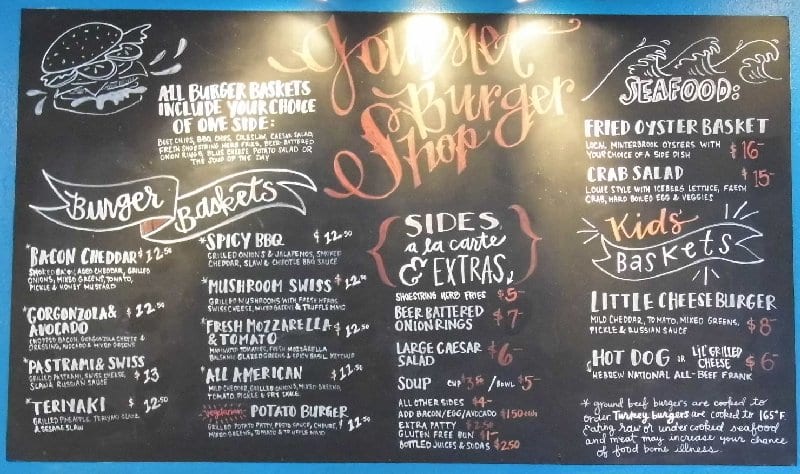 Gourmet
Burger
Shop
ALL BURGER BASKETS
INCLUDE YOUR CHOICE
OF ONE SIDE:
BEET CHIPS, BBQ CHIPS, COLESLAW, CAESAR SALAD,
FRESH SHOESTRING HERB FRIES, BEER-BATTERED
ONION RINGS, BLUE CHEESE POTATO SALAD OR
THE SOUP OF THE DAY
Burger
Baskets
*BACON CHEDDAR $12.50
SMOKED BACON, AGED CHEDDAR, GRILLED
ONIONS, MIXED GREENS, TOMATO,
PICKLE & HONEY MUSTARD
*GORGONZOLA &
AVOCADO $12.50
CHOPPED BACON, GORGONZOLA CHEESE &
DRESSING, AVOCADO & MIXED GREENS
*PASTRAMI & SWISS
$13
GRILLED PASTRAMI, SWISS CHEESE,
SLAW & RUSSIAN SAUCE
*TERIYAKI $12.50
GRILLED PINEAPPLE, TERIYAKI GLAZE
& SESAME SLAW
*SPICY BBQ $12.50
GRILLED ONIONS & JALAPENOS, SMOKED
CHEDDAR, SLAW & CHIPOTLE BBQ SAUCE
*MUSHROOM SWISS $12.50
GRILLED MUSHROOMS WITH FRESH HERBS
SWISS CHEESE, MIXED GREENS & TRUFFLE MAYO
*FRESH MOZZARELLA
& TOMATO $12.50
MARINATED TOMATOES, FRESH MOZZARELLA
BALSAMIC GLAZED GREENS & SPICY BASIL KETCHUP
*ALL AMERICAN $11.50
MILD CHEDDAR, GRILLED ONIONS, MIXED GREENS,
TOMATO, PICKLE & FRY SAUCE
vegetarian POTATO BURGER
$12.50
GRILLED POTATO PATTY, PESTO SAUCE, CHEDDAR,
MIXED GREENS, TOMATO & TRUFFLE MAYO
SIDES
a la carte
& EXTRAS
SHOESTRING HERB FRIES $5-
BEER BATTERED
ONION RINGS $7-
LARGE CAESAR
SALAD $6-
SOUP CUP $3.50 / BOWL $5-
ALL OTHER SIDES $4-
ADD BACON/EGG/AVOCADO $1.50 each
EXTRA PATTY $2.50
GLUTEN FREE BUN $1-
BOTTLED JUICES & SODAS $2.50
SEAFOOD:
FRIED OYSTER BASKET
LOCAL MINTERBROOK OYSTERS WITH
YOUR CHOICE OF A SIDE DISH $16-
CRAB SALAD $15-
LOUIE STYLE WITH ICEBERG LETTUCE, FRESH
CRAB, HARD BOILED EGG & VEGGIES
Kids
Baskets
LITTLE CHEESEBURGER
MILD CHEDDAR, TOMATO, MIXED GREENS,
PICKLE & RUSSIAN SAUCE $8-
HOT DOG OR LIL' GRILLED
CHEESE $6-
HEBREW NATIONAL ALL-BEEF FRANK
* ground beef burgers are cooked to
order. Turkey burgers are cooked to 165°F.
Eating raw or under cooked seafood
and meat may increase your chance
of food borne illness.